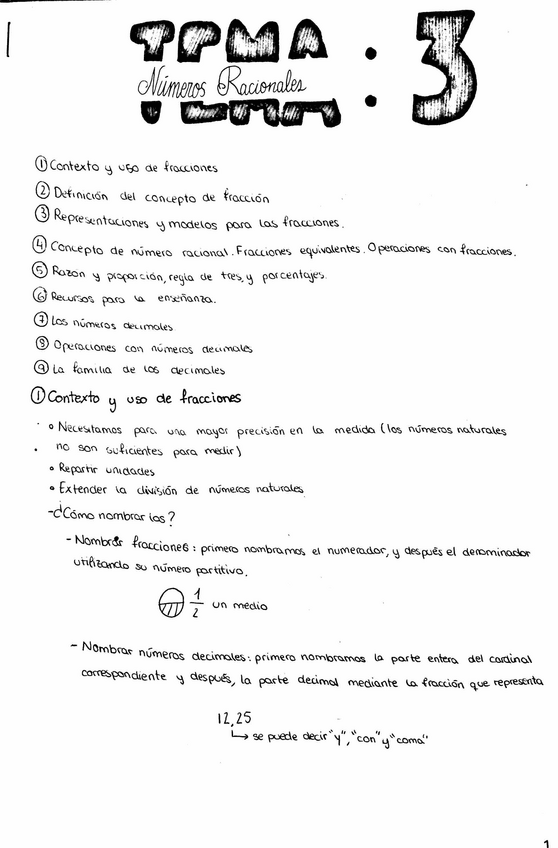 TEMA : 3
Números Racionales
① Contexto y uso de fracciones
② Definición del concepto de fracción
③ Representaciones y modelos para las fracciones.
④ Concepto de número racional. Fracciones equivalentes. Operaciones con fracciones.
⑤ Razon y proporción, regla de tres, y porcentajes.
⑥ Recursos para la enseñanza.
⑦ Los números decimales
⑧ Operaciones con números decimales
⑨ La familia de los decimales
① Contexto y uso de fracciones
• Necesitamos para una mayor precisión en la medida (los números naturales
no son suficientes para medir)
• Repartir unidades
• Extender la división de números naturales
- ¿Cómo nombrarlos?
- Nombrar fracciones: primero nombramos el numerador, y después el denominador
utilizando su número partitivo.
1/2 un medio
- Nombrar números decimales: primero nombramos la parte entera del cardinal
correspondiente y después, la parte decimal mediante la fracción que representa
12,25
↳ se puede decir "y", "con" y "coma"
1